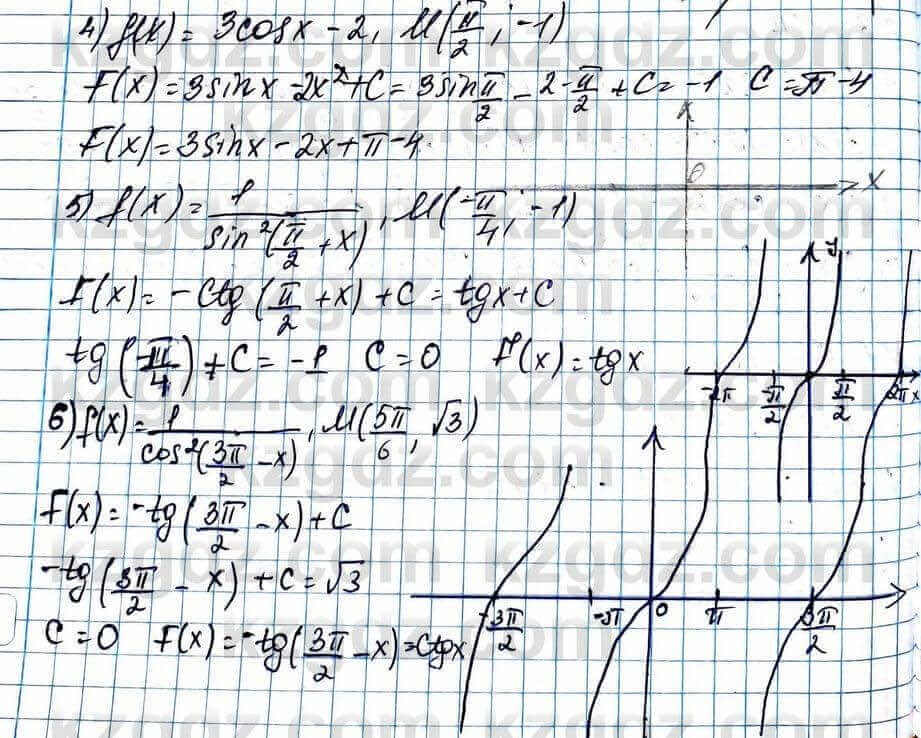 4) f(x) = 3cosx - 2, M(π/2; -1)
F(x) = 3sinx - 2x² + C = 3sin π/2 - 2·π/2 + C = -1  C = π - 4
F(x) = 3sinx - 2x + π - 4
x
0
x
5) f(x) = 1/sin²(π/2 + x), M(-π/4; -1)
F(x) = -Ctg(π/2 + x) + C = tgx + C
tg(-π/4) + C = -1  C = 0  F(x) = tgx
y
-2π -π/2 π/2 2π x
6) f(x) = 1/cos²(3π/2 - x), M(5π/6, √3)
F(x) = -tg(3π/2 - x) + C
-tg(3π/2 - x) + C = √3
C = 0  F(x) = -tg(3π/2 - x) = Ctgx
-3π/2 -π 0 π 3π/2
kzgdz.com